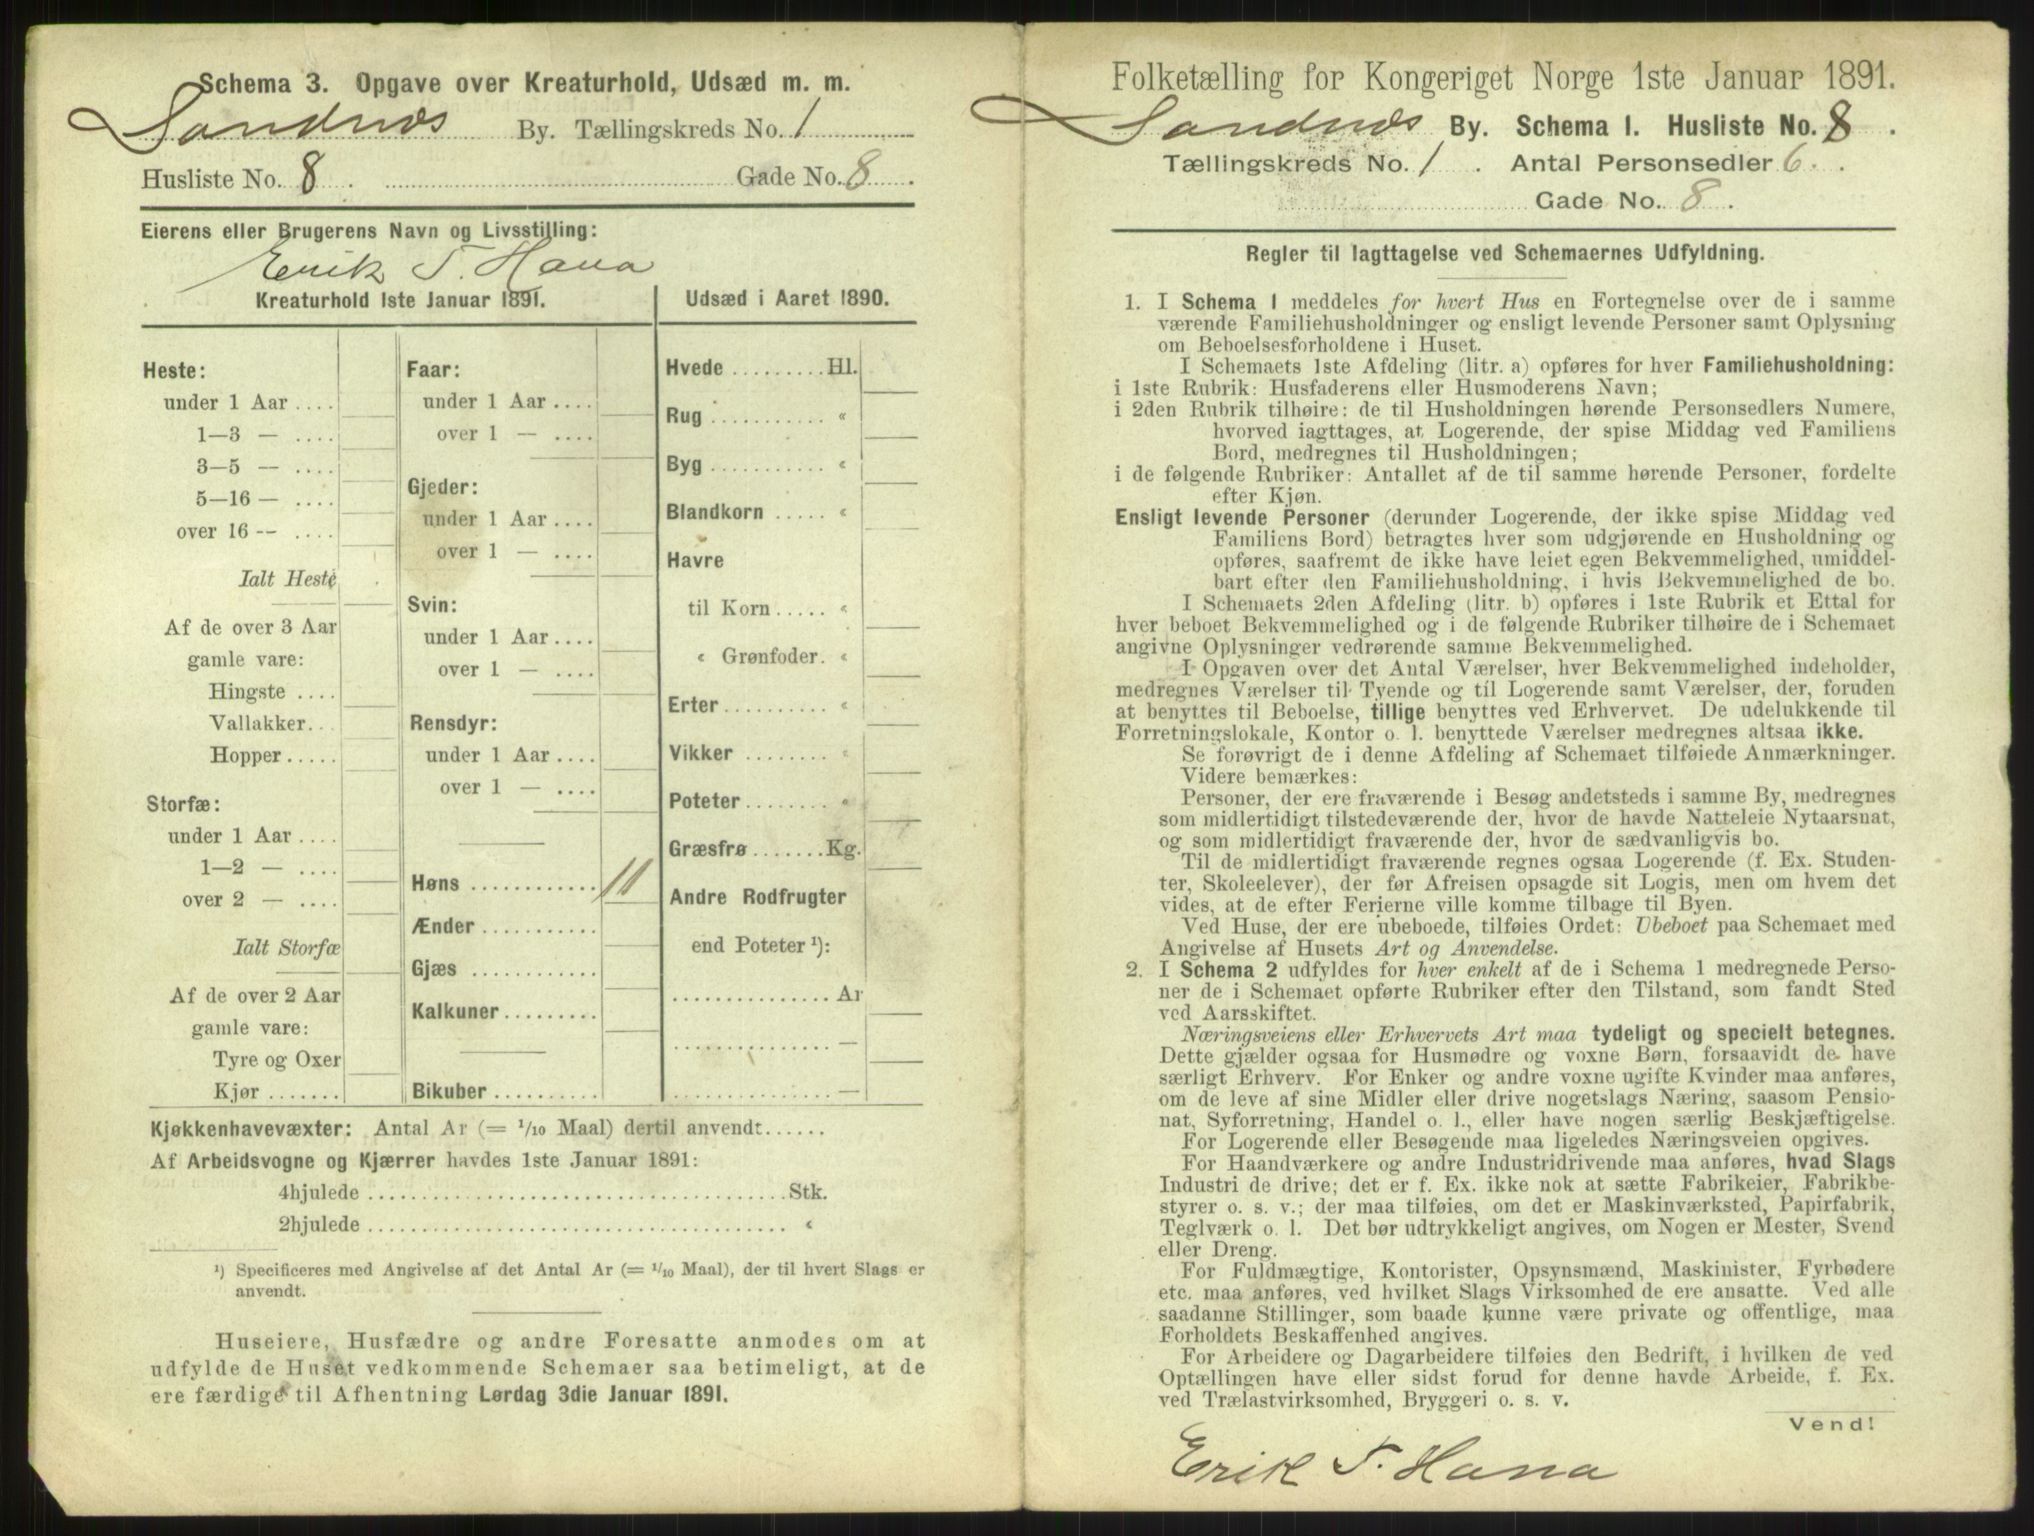 Schema 3. Opgave over Kreaturhold, Udsæd m. m.
Sandnæs By. Tællingskreds No. 1
Husliste No. 8. Gade No. 8.
Eierens eller Brugerens Navn og Livsstilling:
Erik T. Hana
Kreaturhold 1ste Januar 1891.
Heste:
under 1 Aar ....
1—3 — ....
3—5 — ....
5—16 — ....
over 16 — ....
Ialt Heste
Af de over 3 Aar
gamle vare:
Hingste ....
Vallakker..
Hopper.....
Storfæ:
under 1 Aar ....
1—2 — ....
over 2 — ....
Ialt Storfæ
Af de over 2 Aar
gamle vare:
Tyre og Oxer
Kjør .......
Faar:
under 1 Aar ....
over 1 — ....
Gjeder:
under 1 Aar ....
over 1 — ....
Svin:
under 1 Aar ....
over 1 — ....
Rensdyr:
under 1 Aar ....
over 1 — ....
Høns ............ 11
Ænder ...........
Gjæs ............
Kalkuner.........
Bikuber ..........
Udsæd i Aaret 1890.
Hvede .........Hl.
Rug ........... «
Byg ........... «
Blandkorn ..... «
Havre
til Korn ..... «
« Grønfoder. «
Erter .......... «
Vikker ........ «
Poteter ........ «
Græsfrø .......Kg.
Andre Rodfrugter
end Poteter ¹):
............... Ar
............... —
............... —
Kjøkkenhavevæxter: Antal Ar (= 1/10 Maal) dertil anvendt......
Af Arbeidsvogne og Kjærrer havdes 1ste Januar 1891:
4hjulede ........................................Stk.
2hjulede ........................................ «
¹) Specificeres med Angivelse af det Antal Ar (= 1/10 Maal), der til hvert Slags er
anvendt.
Huseiere, Husfædre og andre Foresatte anmodes om at
udfylde de Huset vedkommende Schemaer saa betimeligt, at de
ere færdige til Afhentning Lørdag 3die Januar 1891.
Folketælling for Kongeriget Norge 1ste Januar 1891.
Sandnæs By. Schema 1. Husliste No. 8.
Tællingskreds No. 1. Antal Personsedler 6.
Gade No. 8.
Regler til Iagttagelse ved Schemaernes Udfyldning.
1. I Schema 1 meddeles for hvert Hus en Fortegnelse over de i samme
værende Familiehusholdninger og ensligt levende Personer samt Oplysning
om Beboelsesforholdene i Huset.
I Schemaets 1ste Afdeling (litr. a) opføres for hver Familiehusholdning:
i 1ste Rubrik: Husfaderens eller Husmoderens Navn;
i 2den Rubrik tilhøire: de til Husholdningen hørende Personsedlers Numere,
hvorved iagttages, at Logerende, der spise Middag ved Familiens
Bord, medregnes til Husholdningen;
i de følgende Rubriker: Antallet af de til samme hørende Personer, fordelte
efter Kjøn.
Ensligt levende Personer (derunder Logerende, der ikke spise Middag ved
Familiens Bord) betragtes hver som udgjørende en Husholdning og
opføres, saafremt de ikke have leiet egen Bekvemmelighed, umiddel-
bart efter den Familiehusholdning, i hvis Bekvemmelighed de bo.
I Schemaets 2den Afdeling (litr. b) opføres i 1ste Rubrik et Ettal for
hver beboet Bekvemmelighed og i de følgende Rubriker tilhøire de i Schemaet
angivne Oplysninger vedrørende samme Bekvemmelighed.
I Opgaven over det Antal Værelser, hver Bekvemmelighed indeholder,
medregnes Værelser til Tyende og til Logerende samt Værelser, der, foruden
at benyttes til Beboelse, tillige benyttes ved Erhvervet. De udelukkende til
Forretningslokale, Kontor o. l. benyttede Værelser medregnes altsaa ikke.
Se forøvrigt de i denne Afdeling af Schemaet tilføiede Anmærkninger.
Videre bemærkes:
Personer, der ere fraværende i Besøg andetsteds i samme By, medregnes
som midlertidigt tilstedeværende der, hvor de havde Natteleie Nytaarsnat,
og som midlertidigt fraværende der, hvor de sædvanligvis bo.
Til de midlertidigt fraværende regnes ogsaa Logerende (f. Ex. Studen-
ter, Skoleelever), der før Afreisen opsagde sit Logis, men om hvem det
vides, at de efter Ferierne ville komme tilbage til Byen.
Ved Huse, der ere ubeboede, tilføies Ordet: Ubeboet paa Schemaet med
Angivelse af Husets Art og Anvendelse.
2. I Schema 2 udfyldes for hver enkelt af de i Schema 1 medregnede Perso-
ner de i Schemaet opførte Rubriker efter den Tilstand, som fandt Sted
ved Aarsskiftet.
Næringsveiens eller Erhvervets Art maa tydeligt og specielt betegnes.
Dette gjælder ogsaa for Husmødre og voxne Børn, forsaavidt de have
særligt Erhverv. For Enker og andre voxne ugifte Kvinder maa anføres,
om de leve af sine Midler eller drive nogetslags Næring, saasom Pensio-
nat, Syforretning, Handel o. l., eller have nogen særlig Beskjæftigelse.
For Logerende eller Besøgende maa ligeledes Næringsveien opgives.
For Haandværkere og andre Industridrivende maa anføres, hvad Slags
Industri de drive; det er f. Ex. ikke nok at sætte Fabrikeier, Fabrikbe-
styrer o. s. v.; der maa tilføies, om det er Maskinværksted, Papirfabrik,
Teglværk o. l. Det bør udtrykkeligt angives, om Nogen er Mester, Svend
eller Dreng.
For Fuldmægtige, Kontorister, Opsynsmænd, Maskinister, Fyrbødere
etc. maa anføres, ved hvilket Slags Virksomhed de ere ansatte. Ved alle
saadanne Stillinger, som baade kunne være private og offentlige, maa
Forholdets Beskaffenhed angives.
For Arbeidere og Dagarbeidere tilføies den Bedrift, i hvilken de ved
Optællingen have eller sidst forud for denne havde Arbeide, f. Ex.
ved Trælastvirksomhed, Bryggeri o. s. v.
Vend!
Erik T. Hana